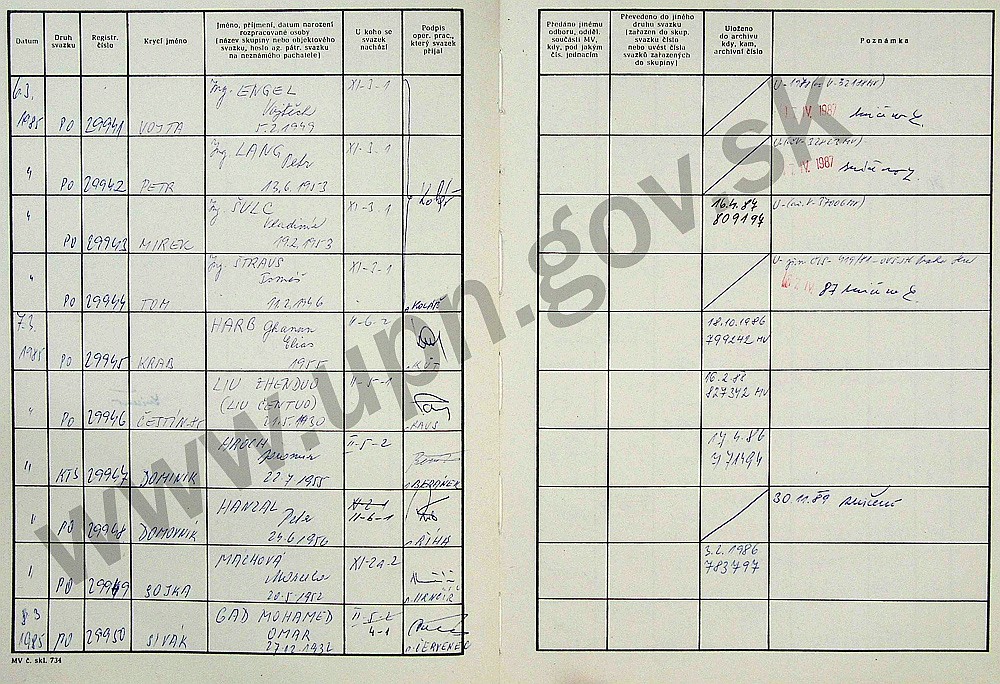 Datum
Druh svazku
Registr. číslo
Krycí jméno
Jméno, příjmení, datum narození rozpracované osoby (název skupiny nebo objektového svazku, heslo ag. pátr. svazku na neznámého pachatele)
U koho se svazek nachází
Podpis oper. prac., který svazek přijal
Předáno jinému odboru, odděl. součásti MV, kdy, pod jakým čís. jednacím
Převedeno do jiného druhu svazku (zařazen do skup. svazku číslo nebo uvést čísla svazků zařazených do skupiny)
Uloženo do archivu kdy, kam, archivní číslo
Poznámka
6.3. 1985 PO 29941 VOJTA Ing. ENGEL Vojtěch 5.2.1949 XI-3-1
IV. 1987
" PO 29942 PETR Ing. LANG Petr 13.6.1953 XI-3-1
IV. 1987
" PO 29943 MIREK Ing. ŠULC Vladimír 19.2.1953 XI-3-1
16.4.87 809197
" PO 29944 TOM Ing. STRAUS Tomáš 11.2.1946 XI-3-1 KOLÁŘ
87
7.3. 1985 PO 29945 KRAB HARB Ghanan Elias 1955 II-6-2
18.10.1986 799242 MV
" PO 29946 LIU ZHENDUO (LIU ČENTUO) 21.5.1930 II-5-1
16.2.88 827342 MV
" KTS 29947 DOMINIK HROCH 22.7.1955 II-5-2 BERÁNEK
17.4.86 771494
" PO 29948 DOMOVNÍK HANZAL Petr 24.6.1956 II-6-1 ŘÍHA
30.11.89 zničení
" PO 29949 SOJKA MACHOVÁ 20.5.1952 XI-2a-2 URNČÍŘ
3.2.1986 783797
8.3 1985 PO 29950 SIVÁK GAD MOHAMED OMAR 27.12.1932 4-1 ČERVENEC
MV č. skl. 734
www.upn.gov.sk